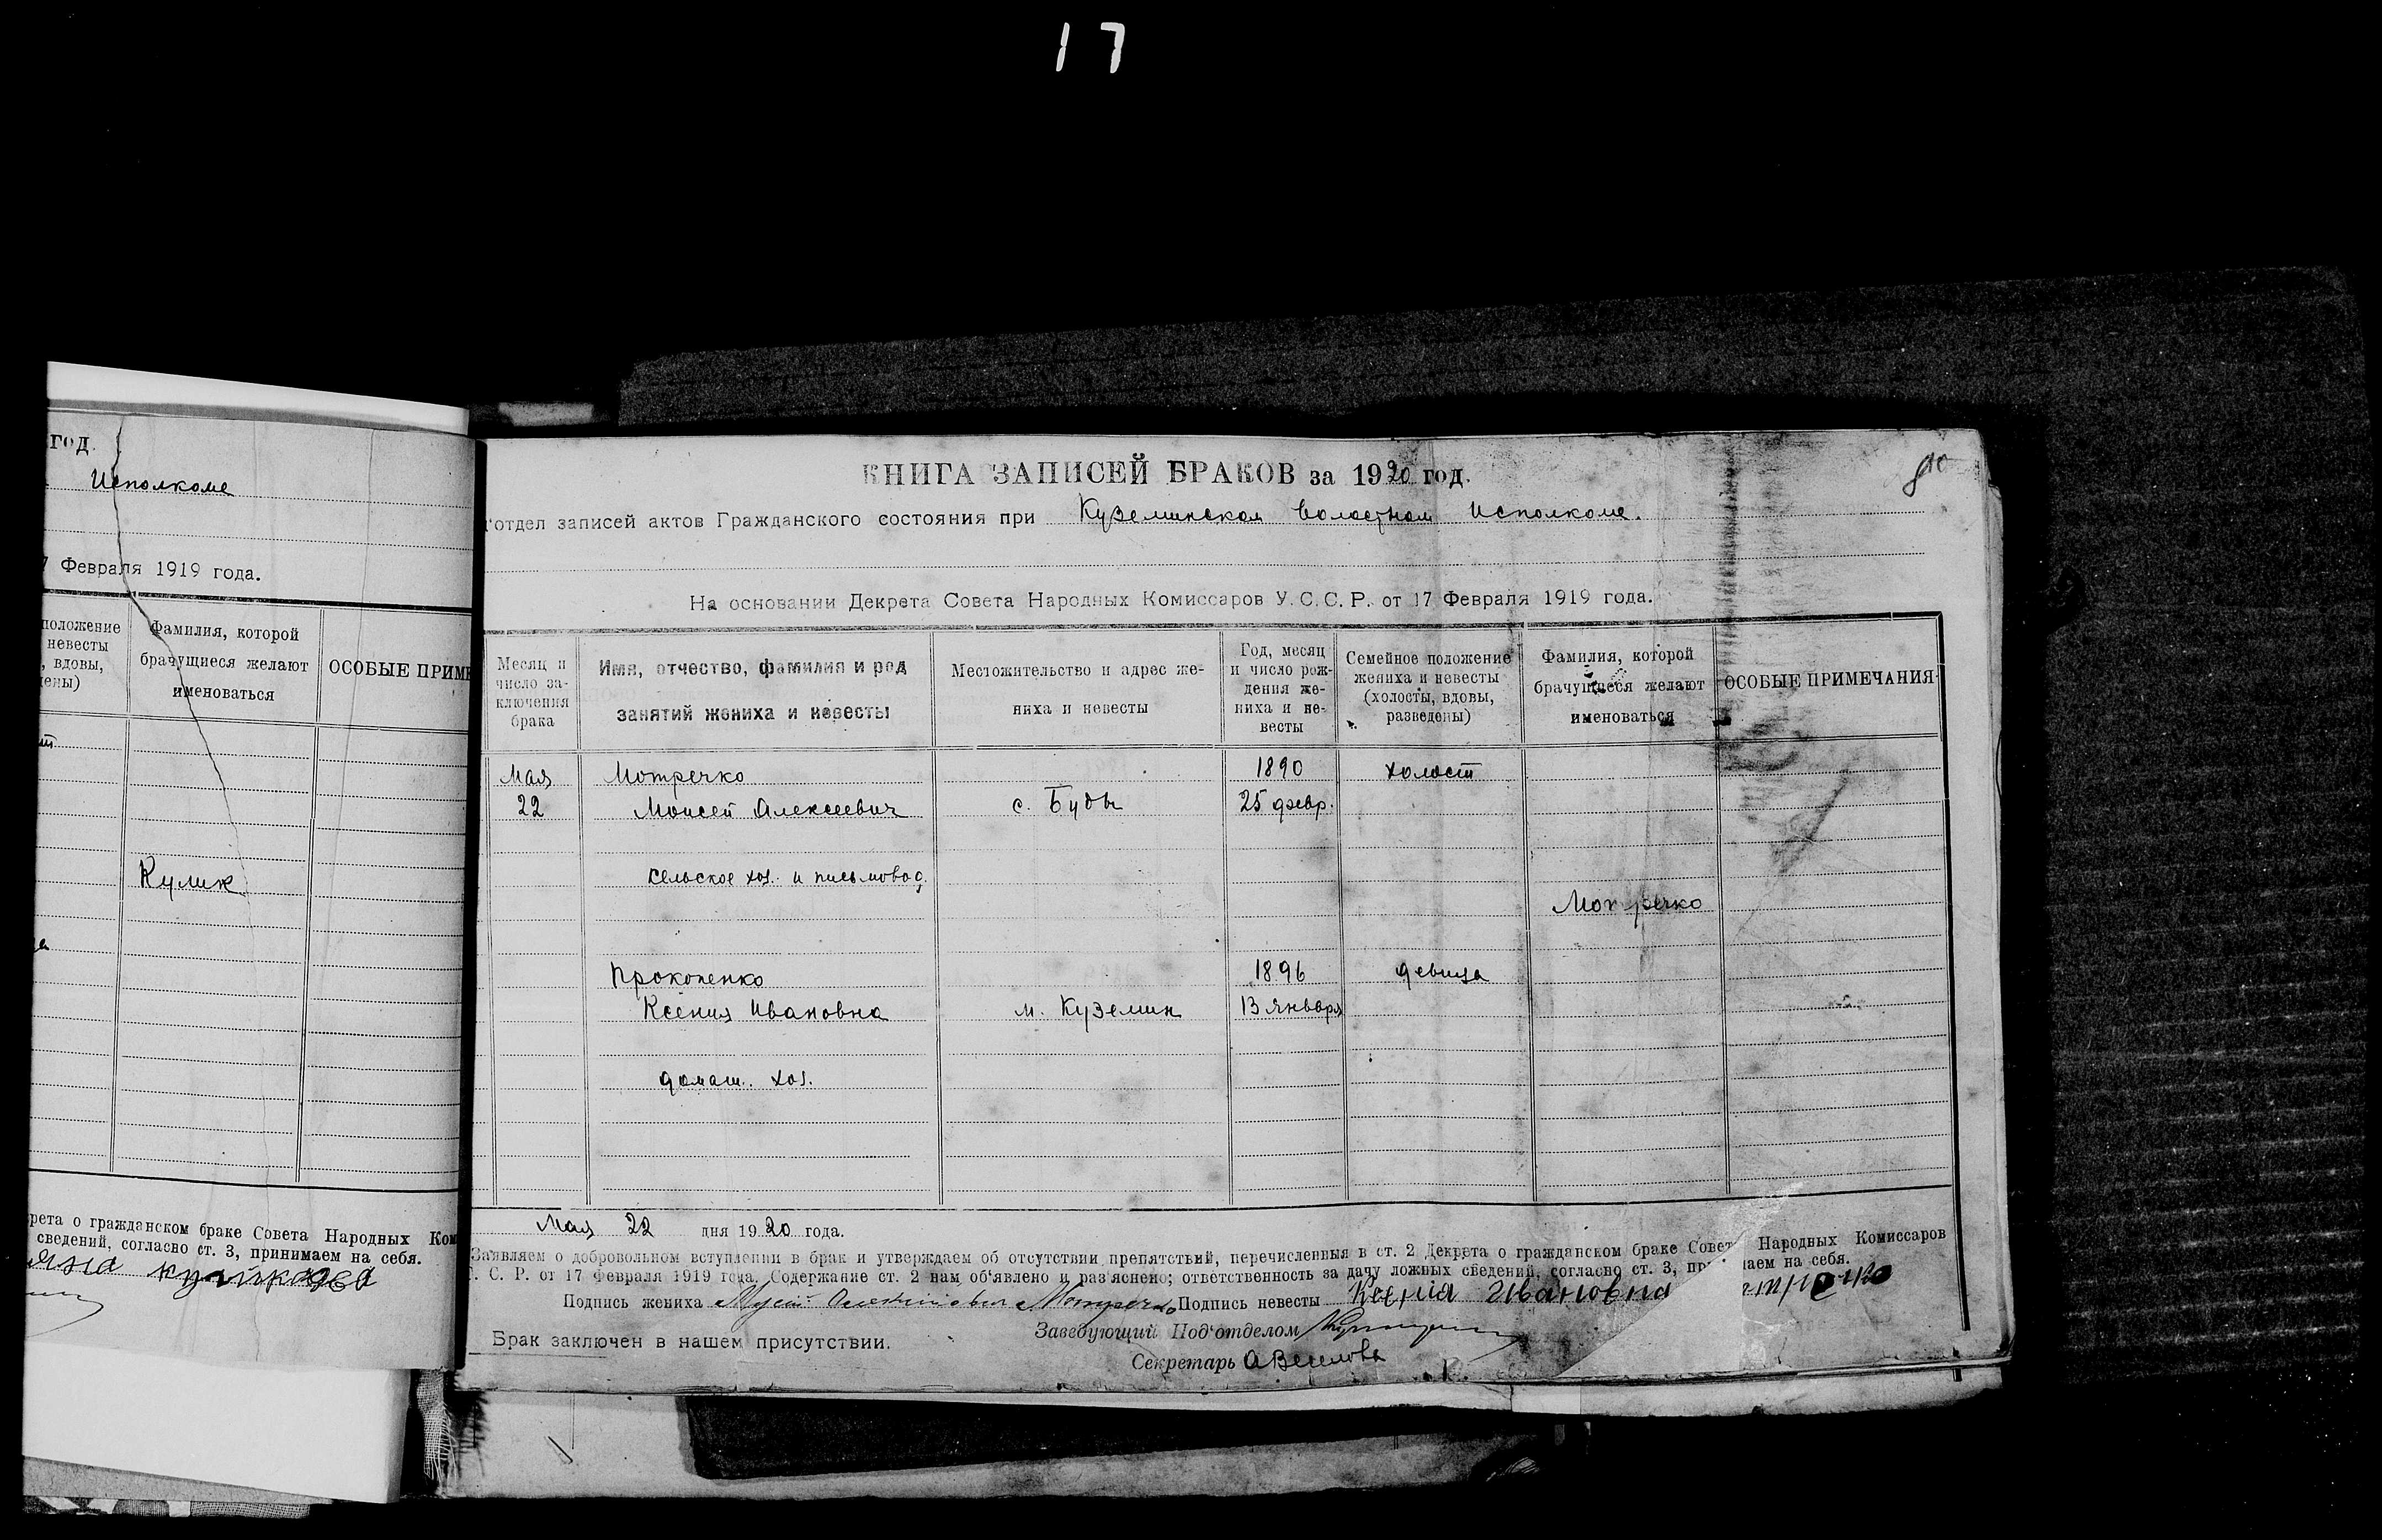 17
год.
Исполкоме
7 Февраля 1919 года.
положение
невесты
, вдовы,
Фамилия, которой
брачущиеся желают
именоваться
ОСОБЫЕ ПРИМЕ
Кулик
рета о гражданском браке Совета Народных Ком
сведений, согласно ст. 3, принимаем на себя.
КНИГА ЗАПИСЕЙ БРАКОВ за 1920 год.
отдел записей актов Гражданского состояния при Куземинском Волостном Исполкоме.
На основании Декрета Совета Народных Комиссаров У.С.С.Р. от 17 Февраля 1919 года.
Месяц и
число за-
ключения
брака
Имя, отчество, фамилия и род
занятий жениха и невесты
Местожительство и адрес же-
ниха и невесты
Год, месяц
и число рож-
дения же-
ниха и не-
весты
Семейное положение
жениха и невесты
(холосты, вдовы,
разведены)
Фамилия, которой
брачущиеся желают
именоваться
ОСОБЫЕ ПРИМЕЧАНИЯ
Мая Мотречко 1890 холост
22 Моисей Алексеевич с. Буды 25 февр.
сельское хоз. и письмовод.
Мотречко
Прокопенко 1896 девица
Ксения Ивановна м. Куземин 13 января
домаш. хоз.
Мая 22 дня 1920 года.
Заявляем о добровольном вступлении в брак и утверждаем об отсутствии препятствий, перечисленных в ст. 2 Декрета о гражданском браке Совет Народных Комиссаров
С. Р. от 17 Февраля 1919 года. Содержание ст. 2 нам об'явлено и раз'яснено; ответственность за дачу ложных сведений, согласно ст. 3, пр аем на себя.
Подпись жениха Мотречко Подпись невесты Ксенія Ивановна
Брак заключен в нашем присутствии.
Заведующий Под'отделом
Секретарь